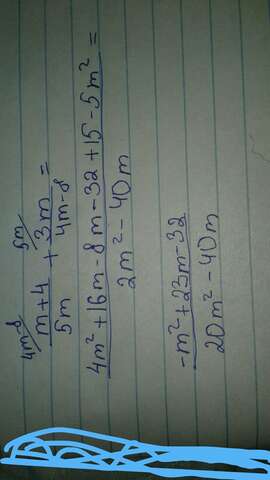 4m-8 5m
m+4 + 3m =
5m 4m-8
4m²+16m-8m-32+15-5m² =
2m²-40m
-m²+23m-32
20m²-40m